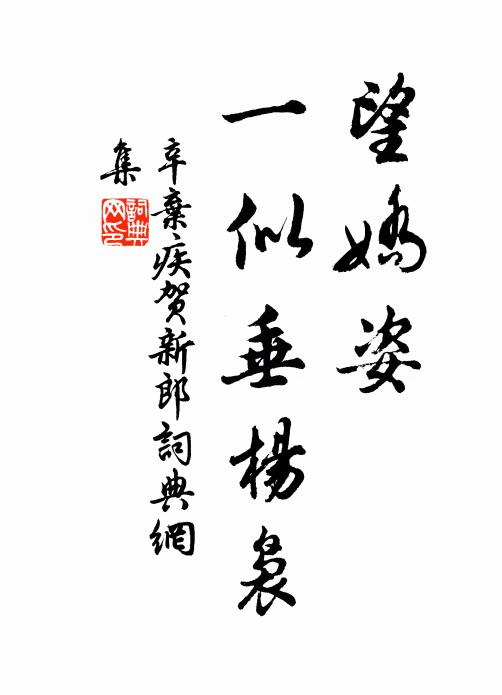 望嬌姿
一似垂楊裊
辛棄疾賀新郎詞典網
集
詞典網印